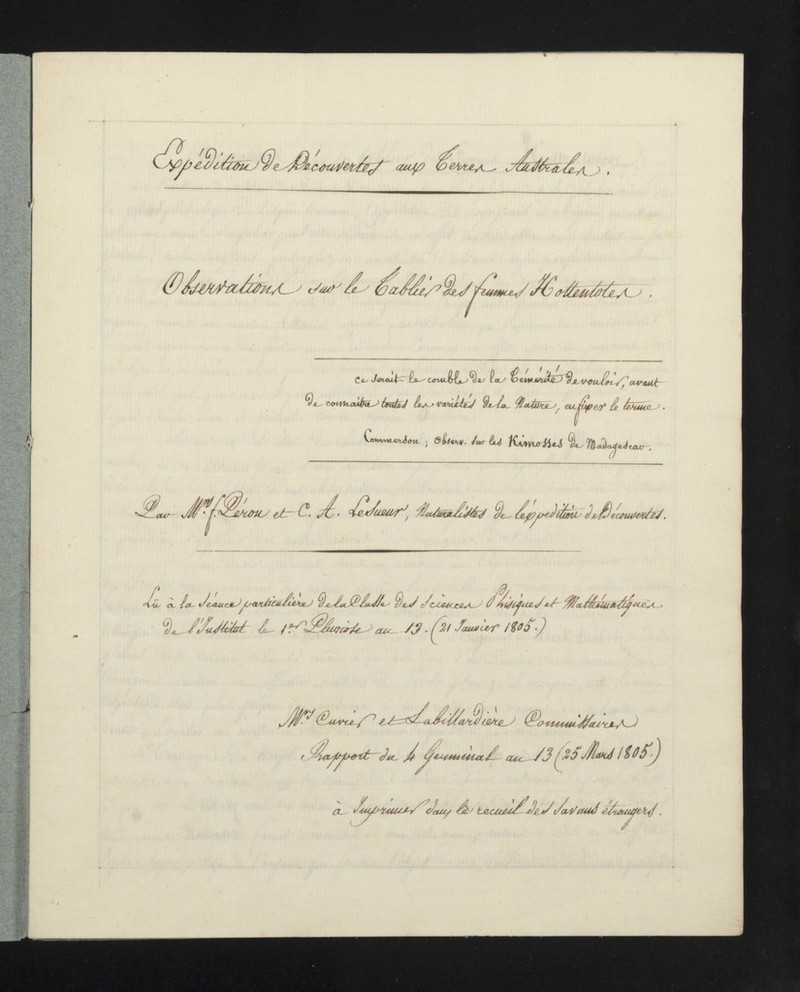 Expédition de Découvertes aux Terres Australes.
Observations sur le Tablier des femmes Hottentotes.
ce serait le comble de la Témérité de vouloir, avant
de connaitre toutes les variétés de la Nature, en fixer le terme.
Commerson ; observ. sur les Kimosses de Madagascar.
Par Mrs. f. Péron et C. A. LeSueur, Naturalistes de l'éxpedition de Découvertes.
Lû à la séance particulière de la Classe des Sciences Phisiques et Mathématiques
de l'Institut le 1er Pluviose an 13. (21 Janvier 1805.)
Mrs. Cuvier et Labillardière Commissaires
Rapport du 4 Germinal an 13 (25 Mars 1805.)
à Imprimer dans le recueil des Savans étrangers.